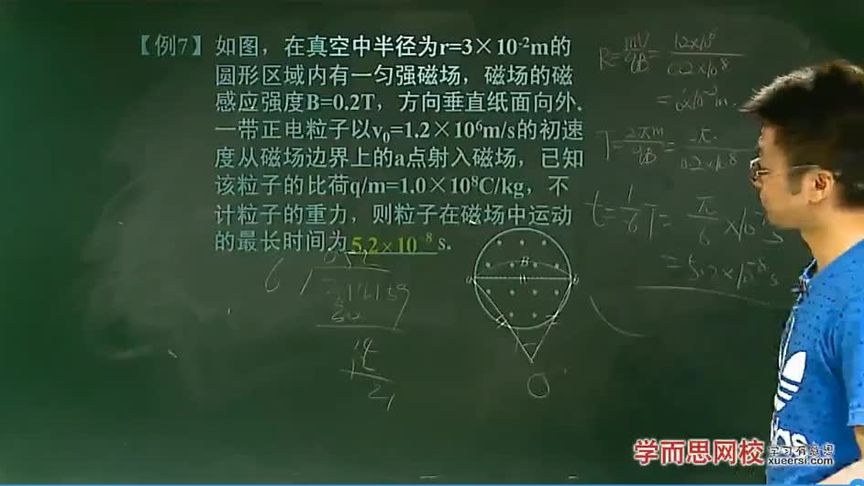 【例7】如图，在真空中半径为r=3×10⁻²m的
圆形区域内有一匀强磁场，磁场的磁
感应强度B=0.2T，方向垂直纸面向外.
一带正电粒子以v₀=1.2×10⁶m/s的初速
度从磁场边界上的a点射入磁场，已知
该粒子的比荷q/m=1.0×10⁸C/kg，不
计粒子的重力，则粒子在磁场中运动
的最长时间为5.2×10⁻⁸s.
R=mV/qB=
T=2πm/qB=
t=1/6T=π/6×10
=5.2×10⁻⁸s
6
a
B
b
R
O
学而思网校
xueersi.com